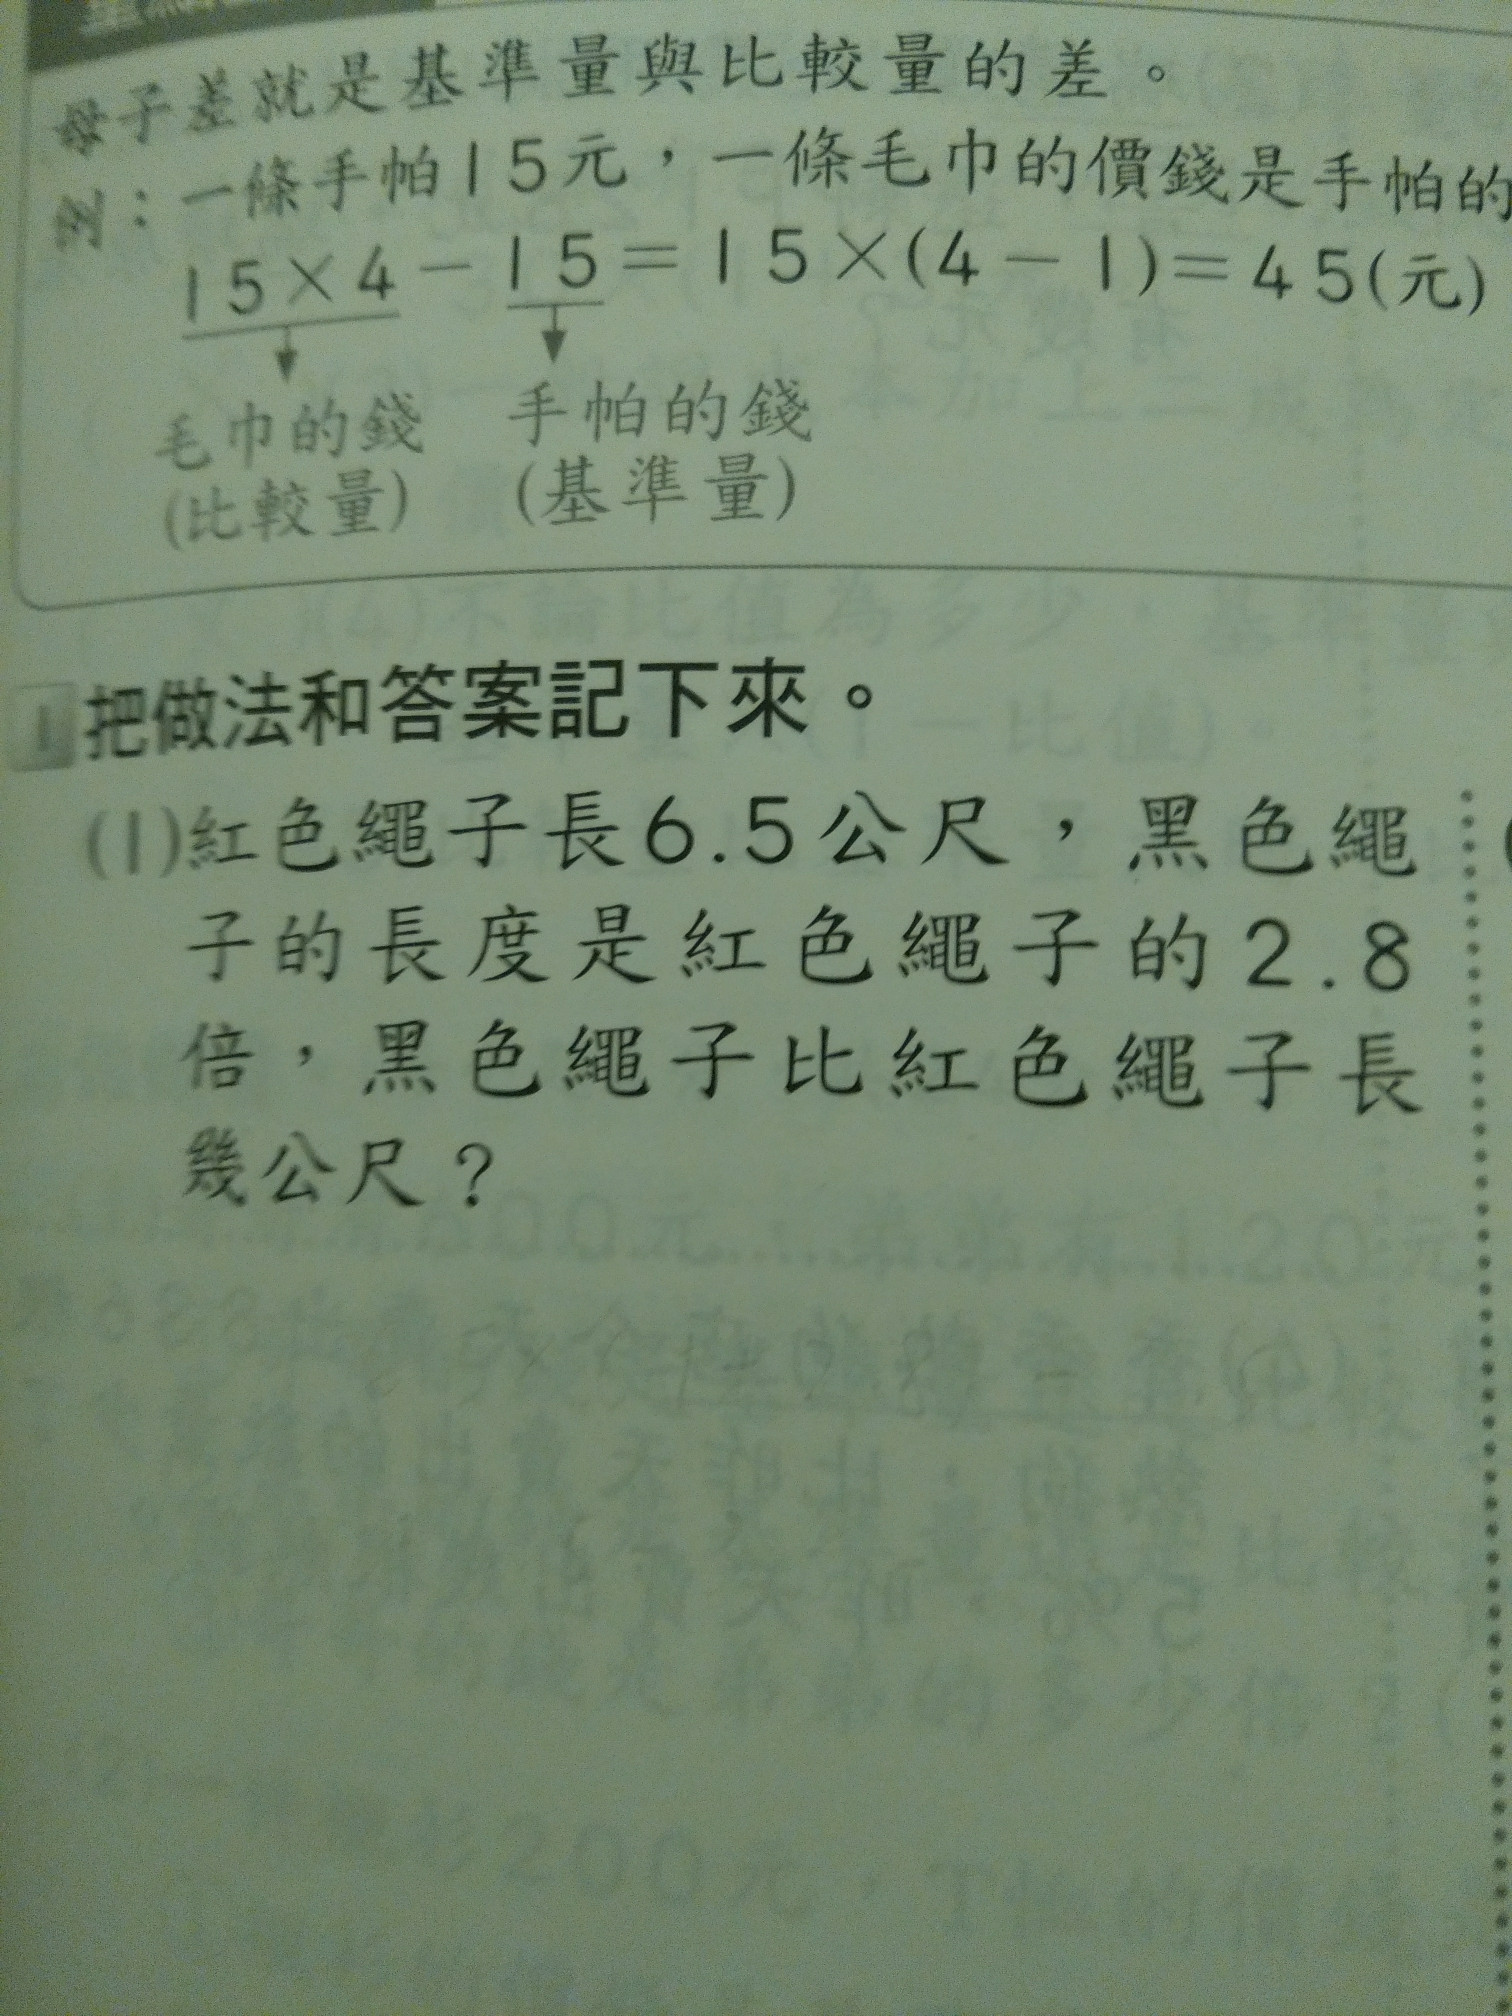 母子差就是基準量與比較量的差。
例：一條手帕15元，一條毛巾的價錢是手帕的
15×4－15＝15×(4－1)＝45(元)
毛巾的錢 手帕的錢
(比較量) (基準量)
1 把做法和答案記下來。
(1)紅色繩子長6.5公尺，黑色繩
子的長度是紅色繩子的2.8
倍，黑色繩子比紅色繩子長
幾公尺？